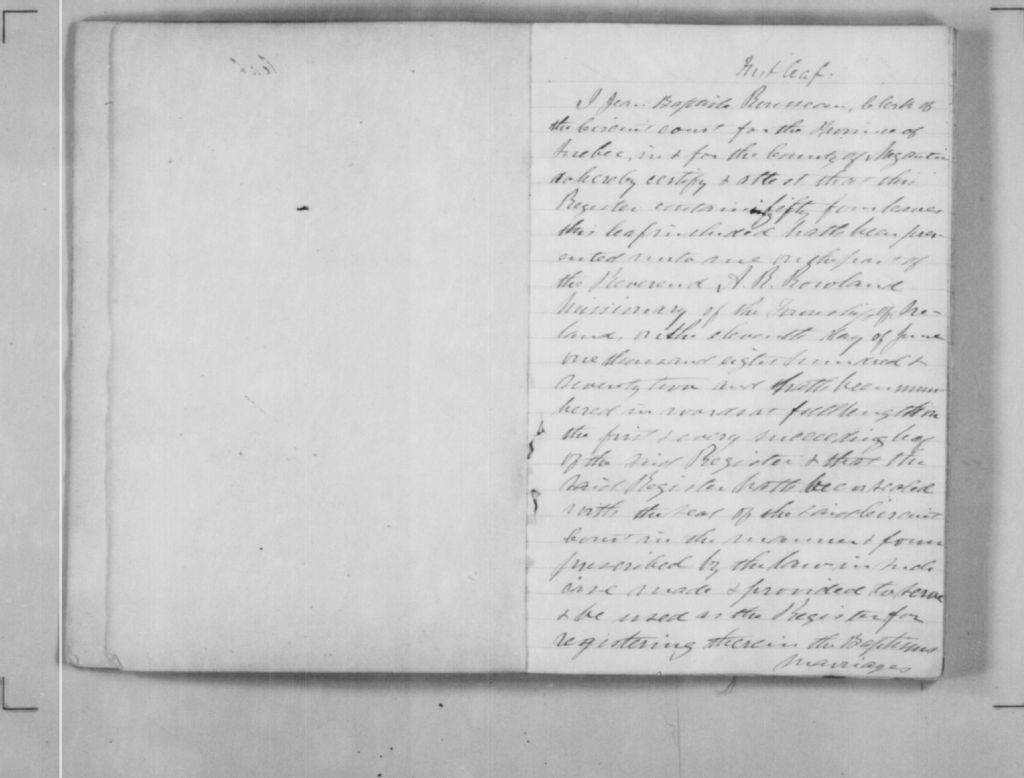 First leaf.
I Jean Baptiste Rousseau, Clerk of
the Circuit court for the Province of
Quebec, in & for the County of Megantic
do hereby certify & attest that this
Register containing fifty four leaves
this leaf included hath been pres-
ented unto me on the part of
the Reverend A. R. Rowland
Missionary of the Township of Ire-
land, on the eleventh day of June
one thousand eight hundred &
seventy two and hath been num-
bered in words at full length on
the first & every succeeding leaf
of the said Register & that the
said Register hath been sealed
with the seal of the said Circuit
Court in the manner & form
prescribed by the law in such
case made & provided to serve
& be used as the Register for
registering therein the Baptisms
Marriages